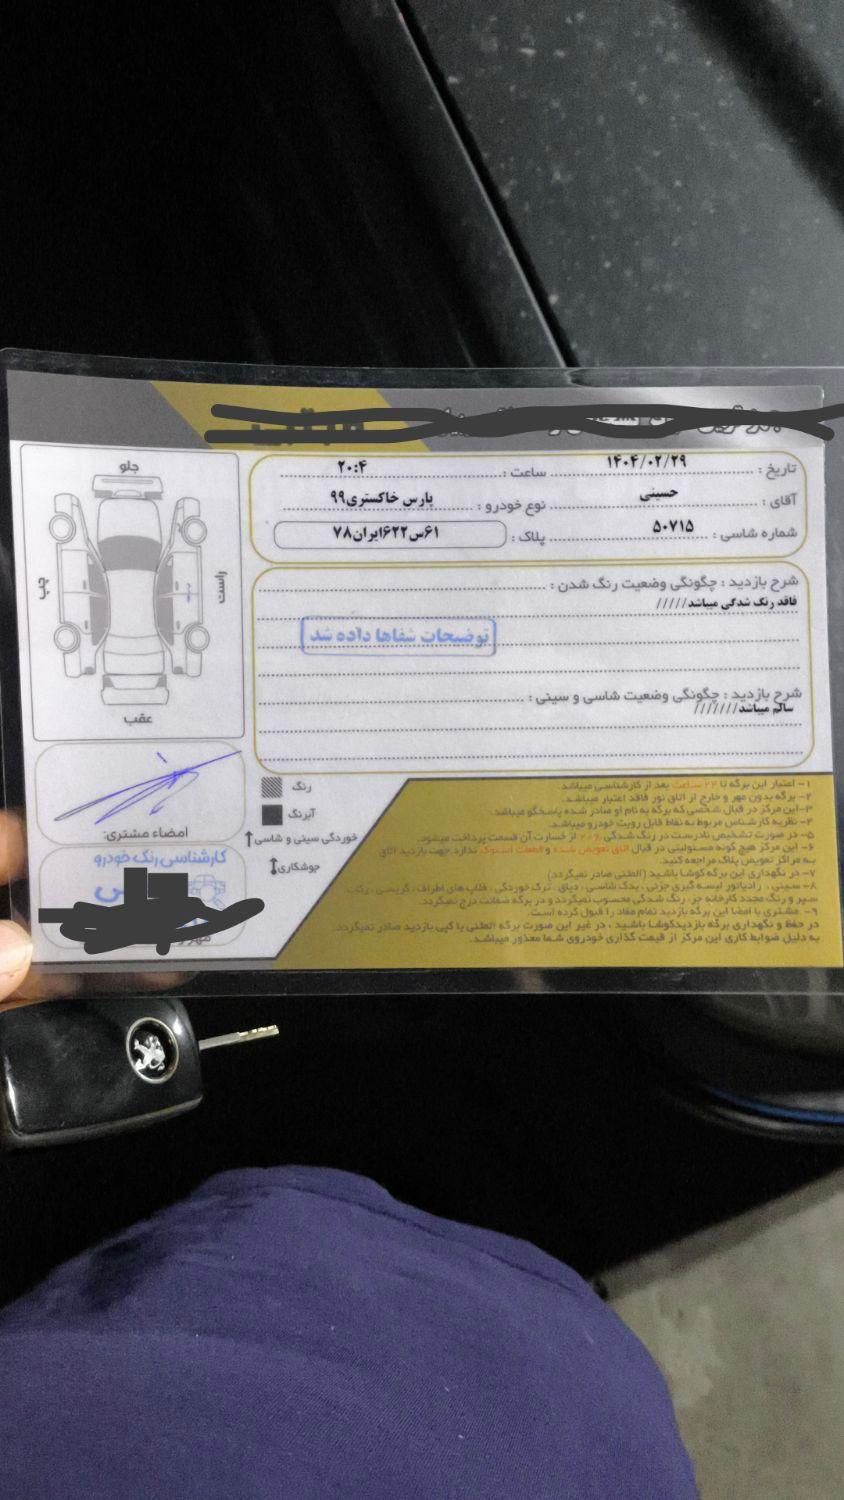 تاریخ : ۱۴۰۴/۰۲/۲۹ ساعت : ۲۰:۴
آقای : حسینی نوع خودرو : پارس خاکستری۹۹
شماره شاسی : ۵۰۷۱۵ پلاک : ۶۱س۶۲۲ایران۷۸
شرح بازدید : چگونگی وضعیت رنگ شدن :
فاقد رنگ شدگی میباشد/////
توضیحات شفاها داده شد
شرح بازدید : چگونگی وضعیت شاسی و سینی :
سالم میباشد///////
جلو
چپ
راست
عقب
رنگ
آبرنگ
خوردگی سینی و شاسی
جوشکاری
امضاء مشتری:
کارشناسی رنگ خودرو
۱- اعتبار این برگه تا ۲۴ ساعت بعد از کارشناسی میباشد.
۲- برگه بدون مهر و خارج از اتاق نور فاقد اعتبار میباشد.
۳-این مرکز در قبال شخصی که برگه به نام او صادر شده پاسخگو میباشد.
۴- نظریه کارشناس مربوط به نقاط قابل رویت خودرو میباشد.
۵- در صورت تشخیص نادرست در رنگ شدگی از خسارت آن قسمت پرداخت میشود.
۶- این مرکز هیچ گونه مسئولیتی در قبال اتاق تعویض شده و قطعات استوک ندارد جهت بازدید اتاق
به مراکز تعویض پلاک مراجعه کنید.
۷- در نگهداری این برگه کوشا باشید (المثنی صادر نمیگردد)
۸- سینی ، رادیاتور لیسه گیری جزئی ، یدک شاسی ، دیاق ، ترک خوردگی ، قلپ های اطراف ، گریسی ، رکاب
سپر و رنگ مجدد کارخانه جز، رنگ شدگی محسوب نمیگردد و در برگه ضمانت درج نمیگردد.
۹- مشتری با امضا این برگه بازدید تمام مفاد را قبول کرده است.
در حفظ و نگهداری برگه بازدیدکوشا باشید ، در غیر این صورت برگه المثنی یا کپی بازدید صادر نمیگردد.
به دلیل ضوابط کاری این مرکز از قیمت گذاری خودروی شما معذور میباشد.